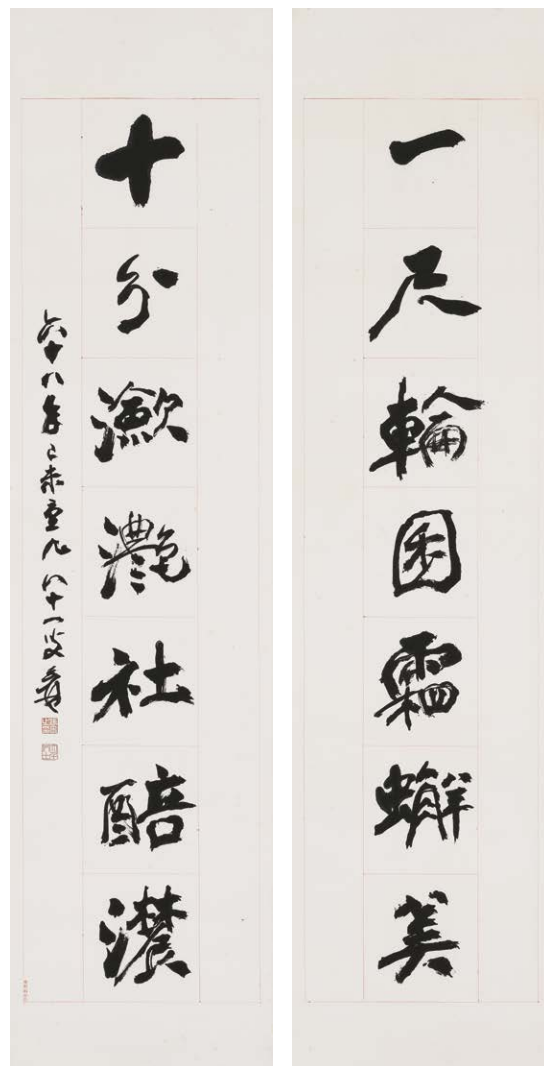 一尺輪囷霜蠏美
十分潋灔社醅濃
六十八年己未重九八十一叟爰